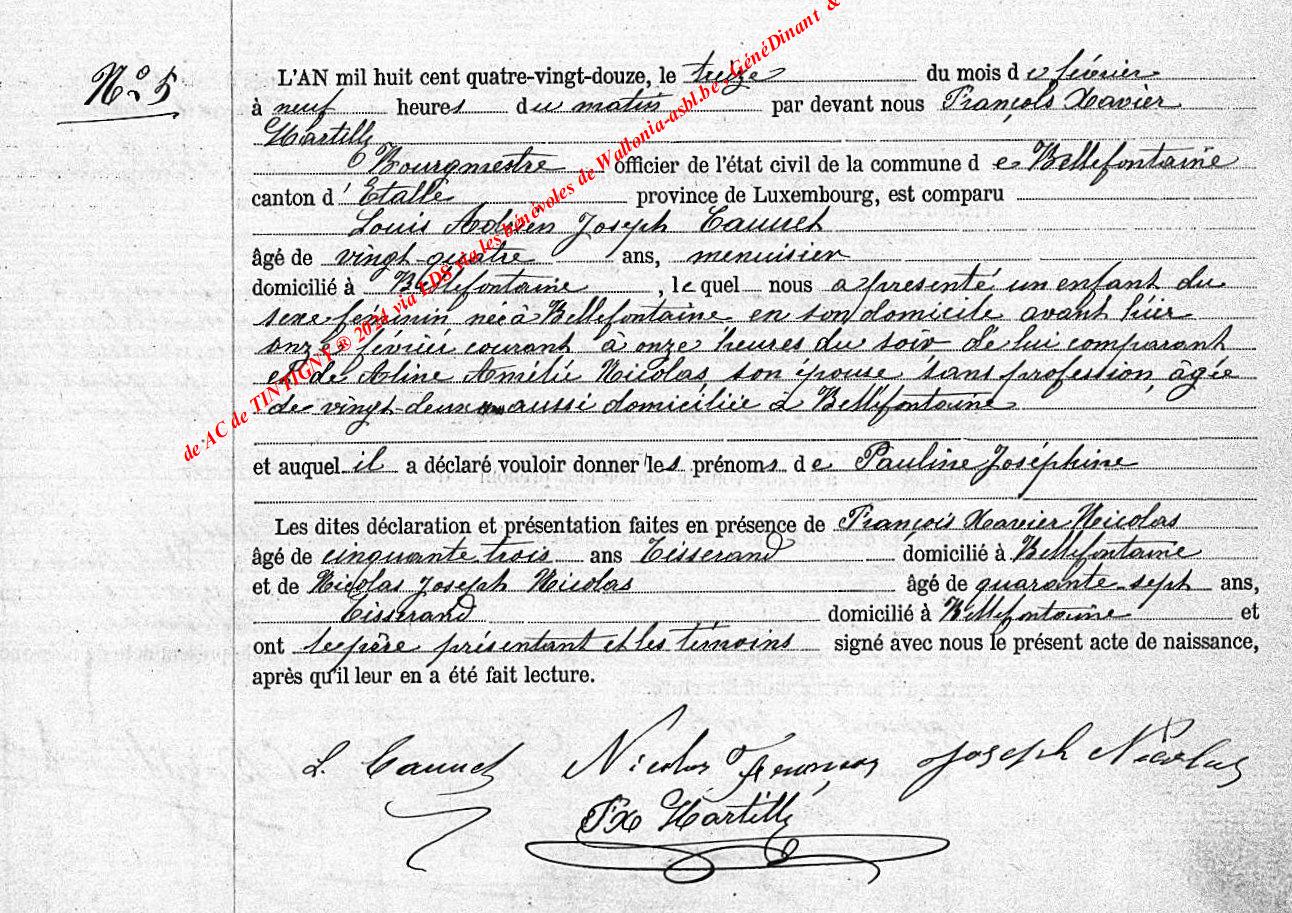 N° 5
L'AN mil huit cent quatre-vingt-douze, le treize du mois de février
à neuf heures du matin par devant nous François Xavier
Hartilly
Bourgmestre officier de l'état civil de la commune de Bellefontaine
canton d'Etalle province de Luxembourg, est comparu
Louis Adrien Joseph
âgé de vingt-quatre ans, menuisier
domicilié à Bellefontaine, lequel nous a présenté un enfant du
sexe féminin, née à Bellefontaine en son domicile avant hier
onze février courant à onze heures du soir de lui comparant
et de Aline Amélie Nicolas, son épouse, sans profession, âgée
de vingt-deux ans aussi domiciliée à Bellefontaine
et auquel il a déclaré vouloir donner les prénoms de Pauline Joséphine
Les dites déclaration et présentation faites en présence de François Xavier Nicolas
âgé de cinquante trois ans Tisserand domicilié à Bellefontaine
et de Nicolas Joseph Nicolas âgé de quarante sept ans,
Tisserand domicilié à Bellefontaine et
ont le père présentant et les témoins signé avec nous le présent acte de naissance,
après qu'il leur en a été fait lecture.
L. Nicolas François Joseph Nicolas
FX Hartilly
de AC de TINTIGNY ® 2024 via EDS via les bénévoles de Wallonia-asbl.be - GénéDinant &